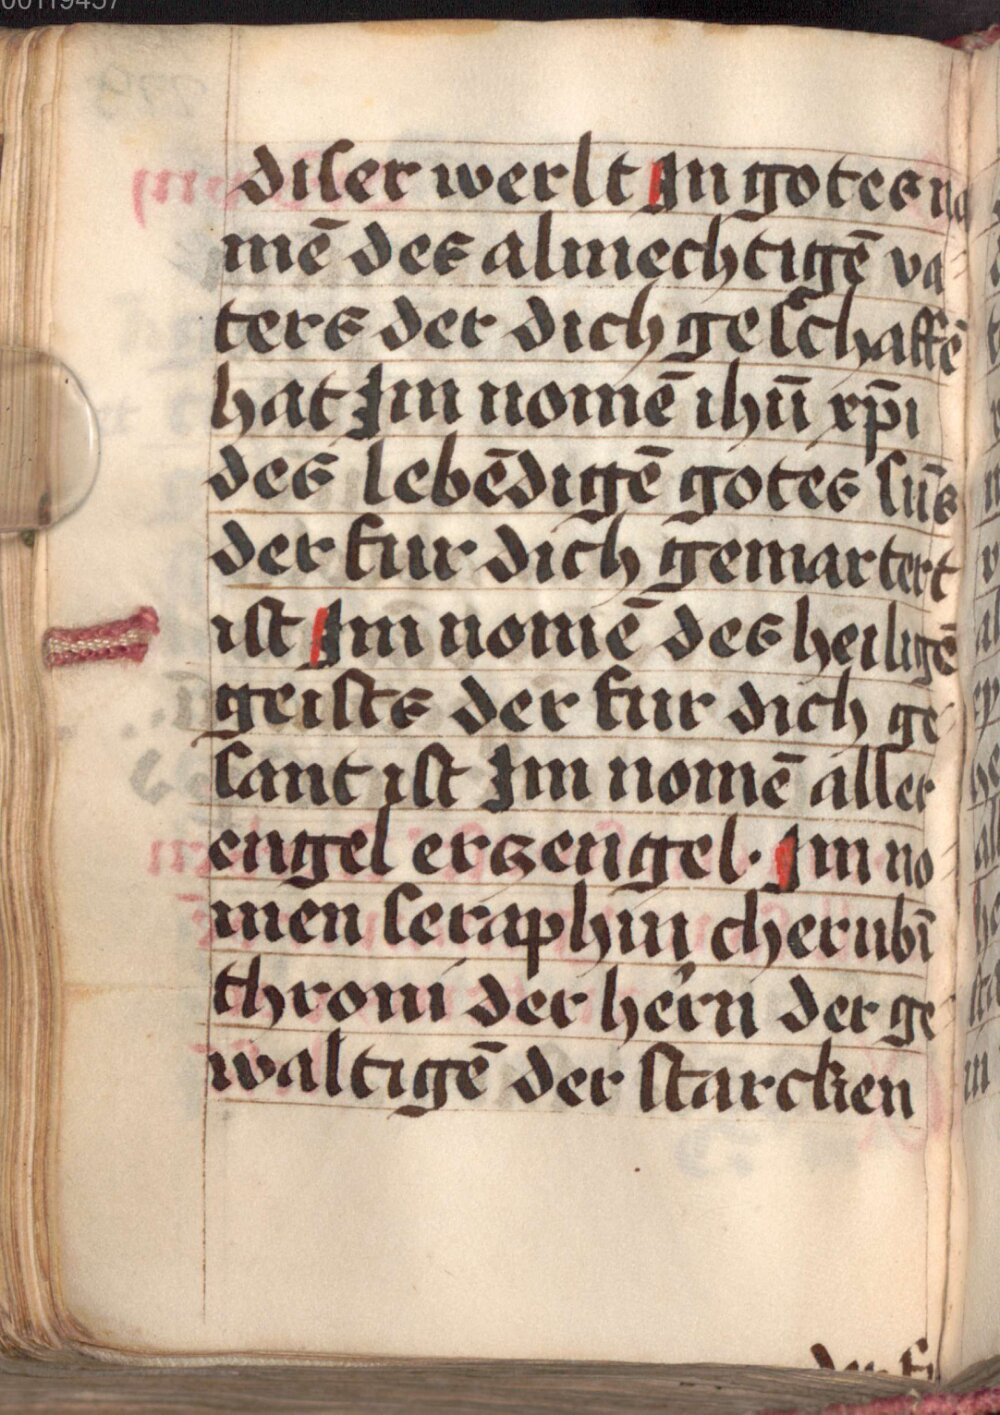 diser werlt In gotes na
mē des almechtigē va
ters der dich geschaffē
hat Im nomē ihū xp̄i
des lebēdigē gotes sūs
der fur dich gemartert
ist Im nomē des heiligē
geists der fur dich ge
sant ist Im nomē aller
engel erczengel · Im no
men seraphin cherubī
throni der hern der ge
waltigē der starcken